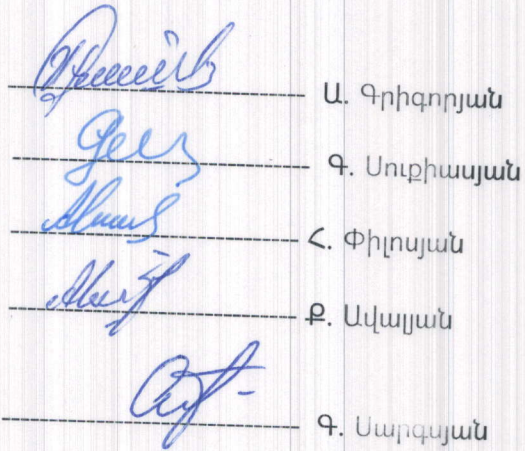 Ա. Գրիգորյան
Գ. Սուքիասյան
Հ. Փիլոսյան
Ք. Ավալյան
Գ. Սարգսյան